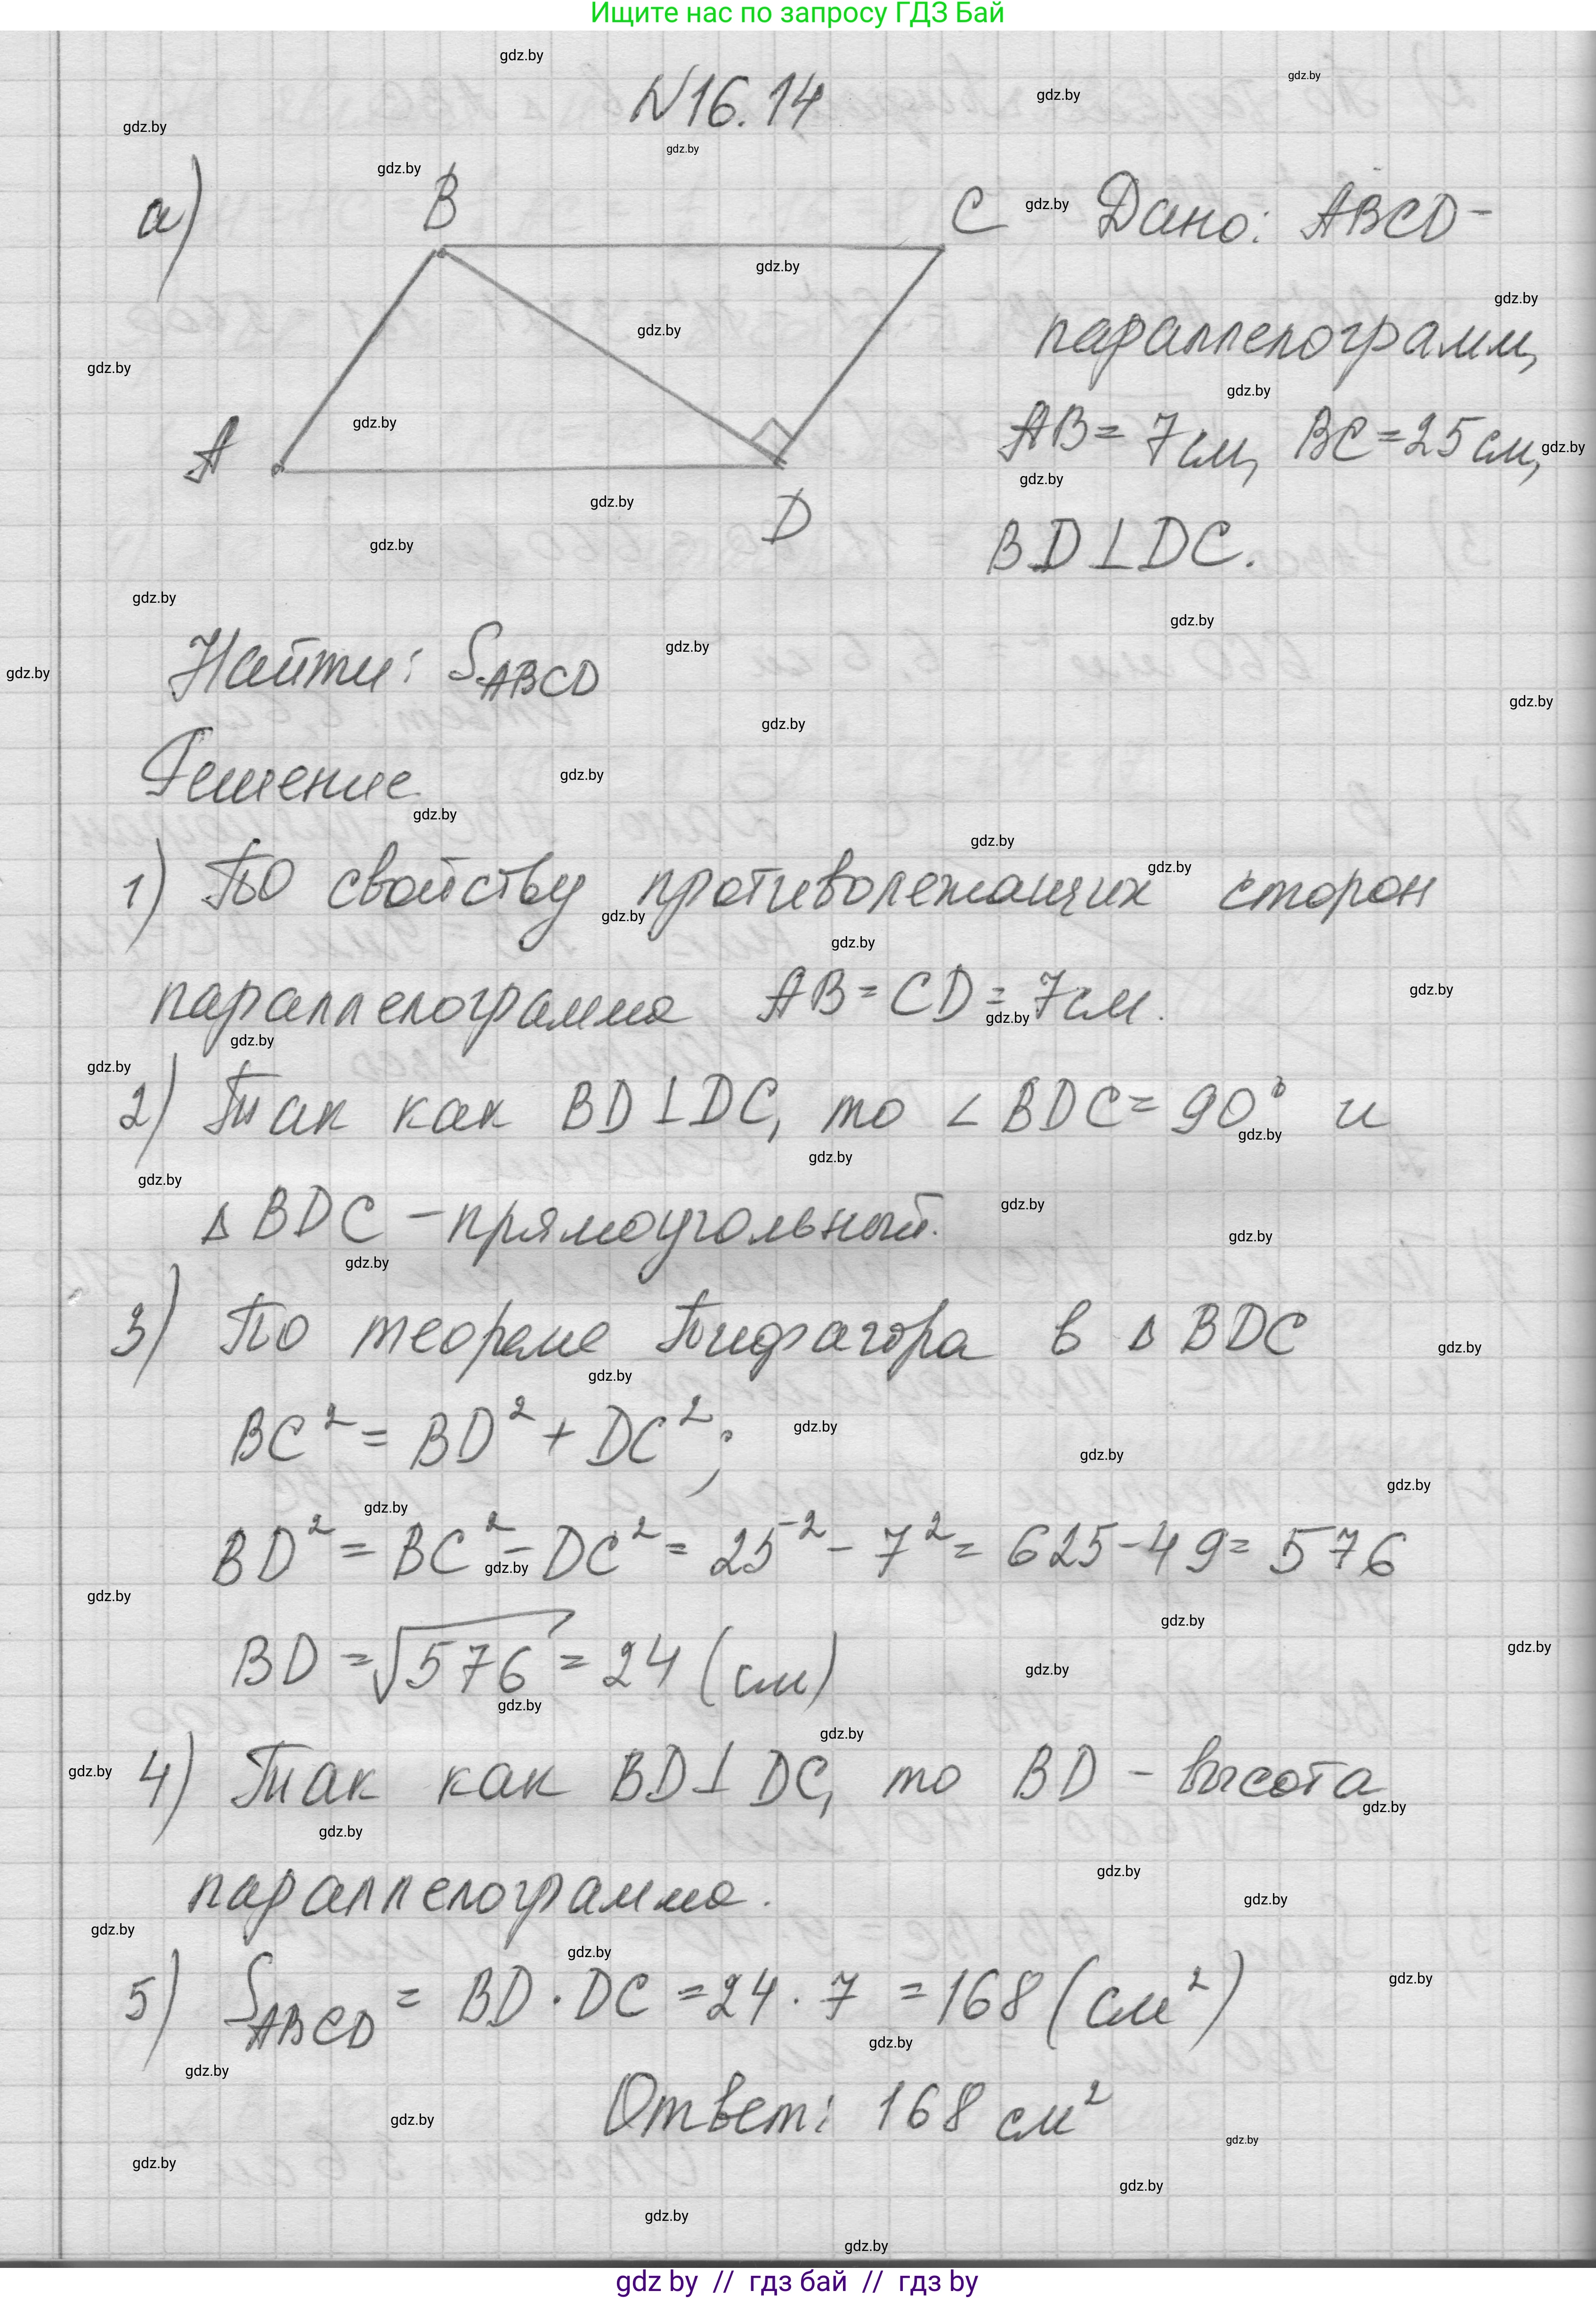 Ищите нас по запросу ГДЗ Бай
№16.14
а)
B
C
A
D
Дано: ABCD-
параллелограмм,
AB= 7см, BC=25см,
BD⊥DC.
Найти: S_ABCD
Решение
1) По свойству противолежащих сторон
параллелограмма AB=CD=7см.
2) Так как BD⊥DC, то ∠BDC=90° и
Δ BDC – прямоугольный.
3) По теореме Пифагора в Δ BDC
BC² = BD² + DC²;
BD² = BC² – DC² = 25² – 7² = 625-49= 576
BD =√576 = 24 (см)
4) Так как BD⊥DC, то BD – высота
параллелограмма.
5) S_ABCD = BD · DC =24 · 7 =168 (см²)
Ответ: 168 см²
gdz by // гдз бай // гдз by